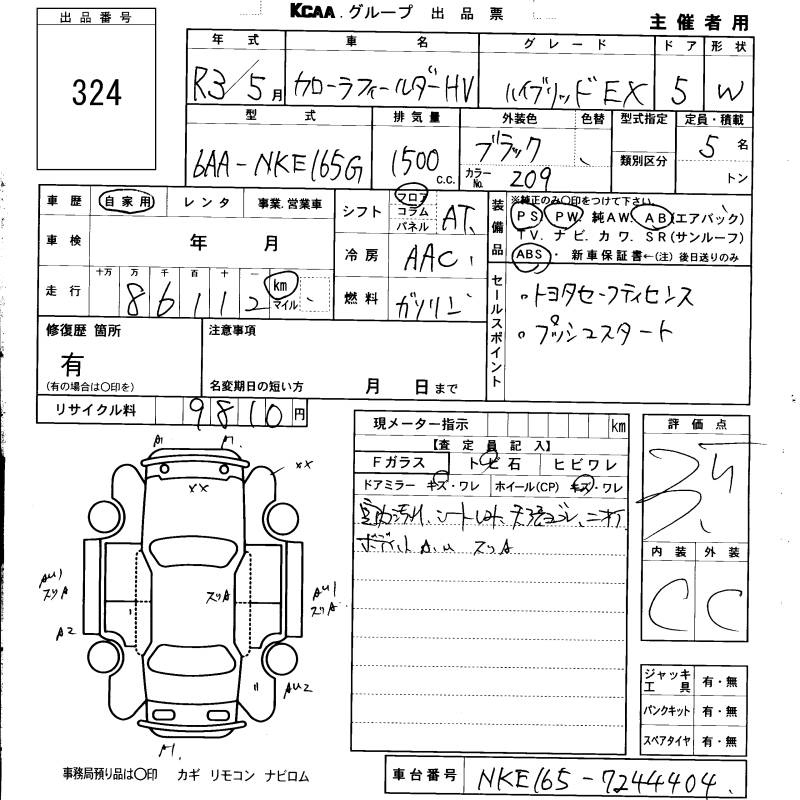 KCAA.グループ 出品票
主催者用
出品番号
324
年式 車名 グレード ドア 形状
R3/5月 カローラフィールダーHV ハイブリッドEX 5 W
型式 排気量 外装色 色替 型式指定 定員・積載
6AA-NKE165G 1500 c.c. ブラック 類別区分 5名
カラーNo. 209 トン
車歴 自家用 レンタ 事業.営業車
シフト フロア コラム パネル AT
装備品 ※純正のみ○印をつけて下さい。
PS PW 純AW. AB(エアバック)
TV. ナビ. カワ. SR(サンルーフ)
ABS・ 新車保証書←(注) 後日送りのみ
車検 年 月
冷房 AAC
走行 十万 万 千 百 十 一
86112 km マイル
燃料 ガソリン
セールスポイント
・トヨタセーフティセンス
・プッシュスタート
修復歴 箇所
有
(有の場合は○印を)
注意事項
名変期日の短い方 月 日まで
リサイクル料 9810円
現メーター指示 km
【査定員記入】
Fガラス トビ石 ヒビワレ
ドアミラー キズ・ワレ ホイール(CP) キズ・ワレ
評価点
3.5
内装 外装
C C
A1 A1
XX
XX
AU1
スリA
A2
スリA
AU1
スリA
AU2
A1.
ジャッキ工具 有・無
パンクキット 有・無
スペアタイヤ 有・無
事務局預り品は○印 カギ リモコン ナビロム
車台番号 NKE165-7244404